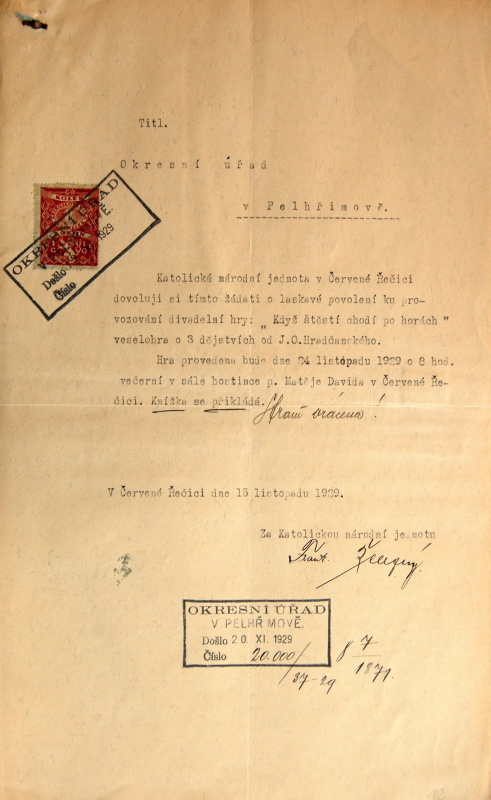 Titl.
Okresní úřad
v Pelhřimově.
KOLEK
OKRESNÍ ÚŘAD
V PELHŘIMOVĚ.
Došlo 1929
Číslo
Katolická národní jednota v Červené Řečici
dovoluji si tímto žádati o laskavé povolení ku pro-
vozování divadelní hry: „ Když štěstí chodí po horách "
veselohra o 3 dějstvích od J.O.Hradčanského.
Hra provedena bude dne 24 listopadu 1929 o 8 hod.
večerní v sále hostince p. Matěje Davida v Červené Ře-
čici. Knížka se přikládá. vrácena!
V Červené Řečici dne 15 listopadu 1929.
Za Katolickou národní jednotu
Frant. Železný.
OKRESNÍ ÚŘAD
V PELHŘIMOVĚ.
Došlo 20 XI. 1929
Číslo 20.000/
37-29
8 7
1871.